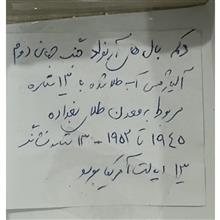 دکمه بال های آزاد جنگ جهانی دوم
آلیاژ مس آب طلا شده با ۱۳ ستاره
مربوط به معدن طلای بغداده
۱۹۴۵ تا ۱۹۵۲ - ۱۳ ستاره نشانگر
۱۳ ایالت آمریکا بوده